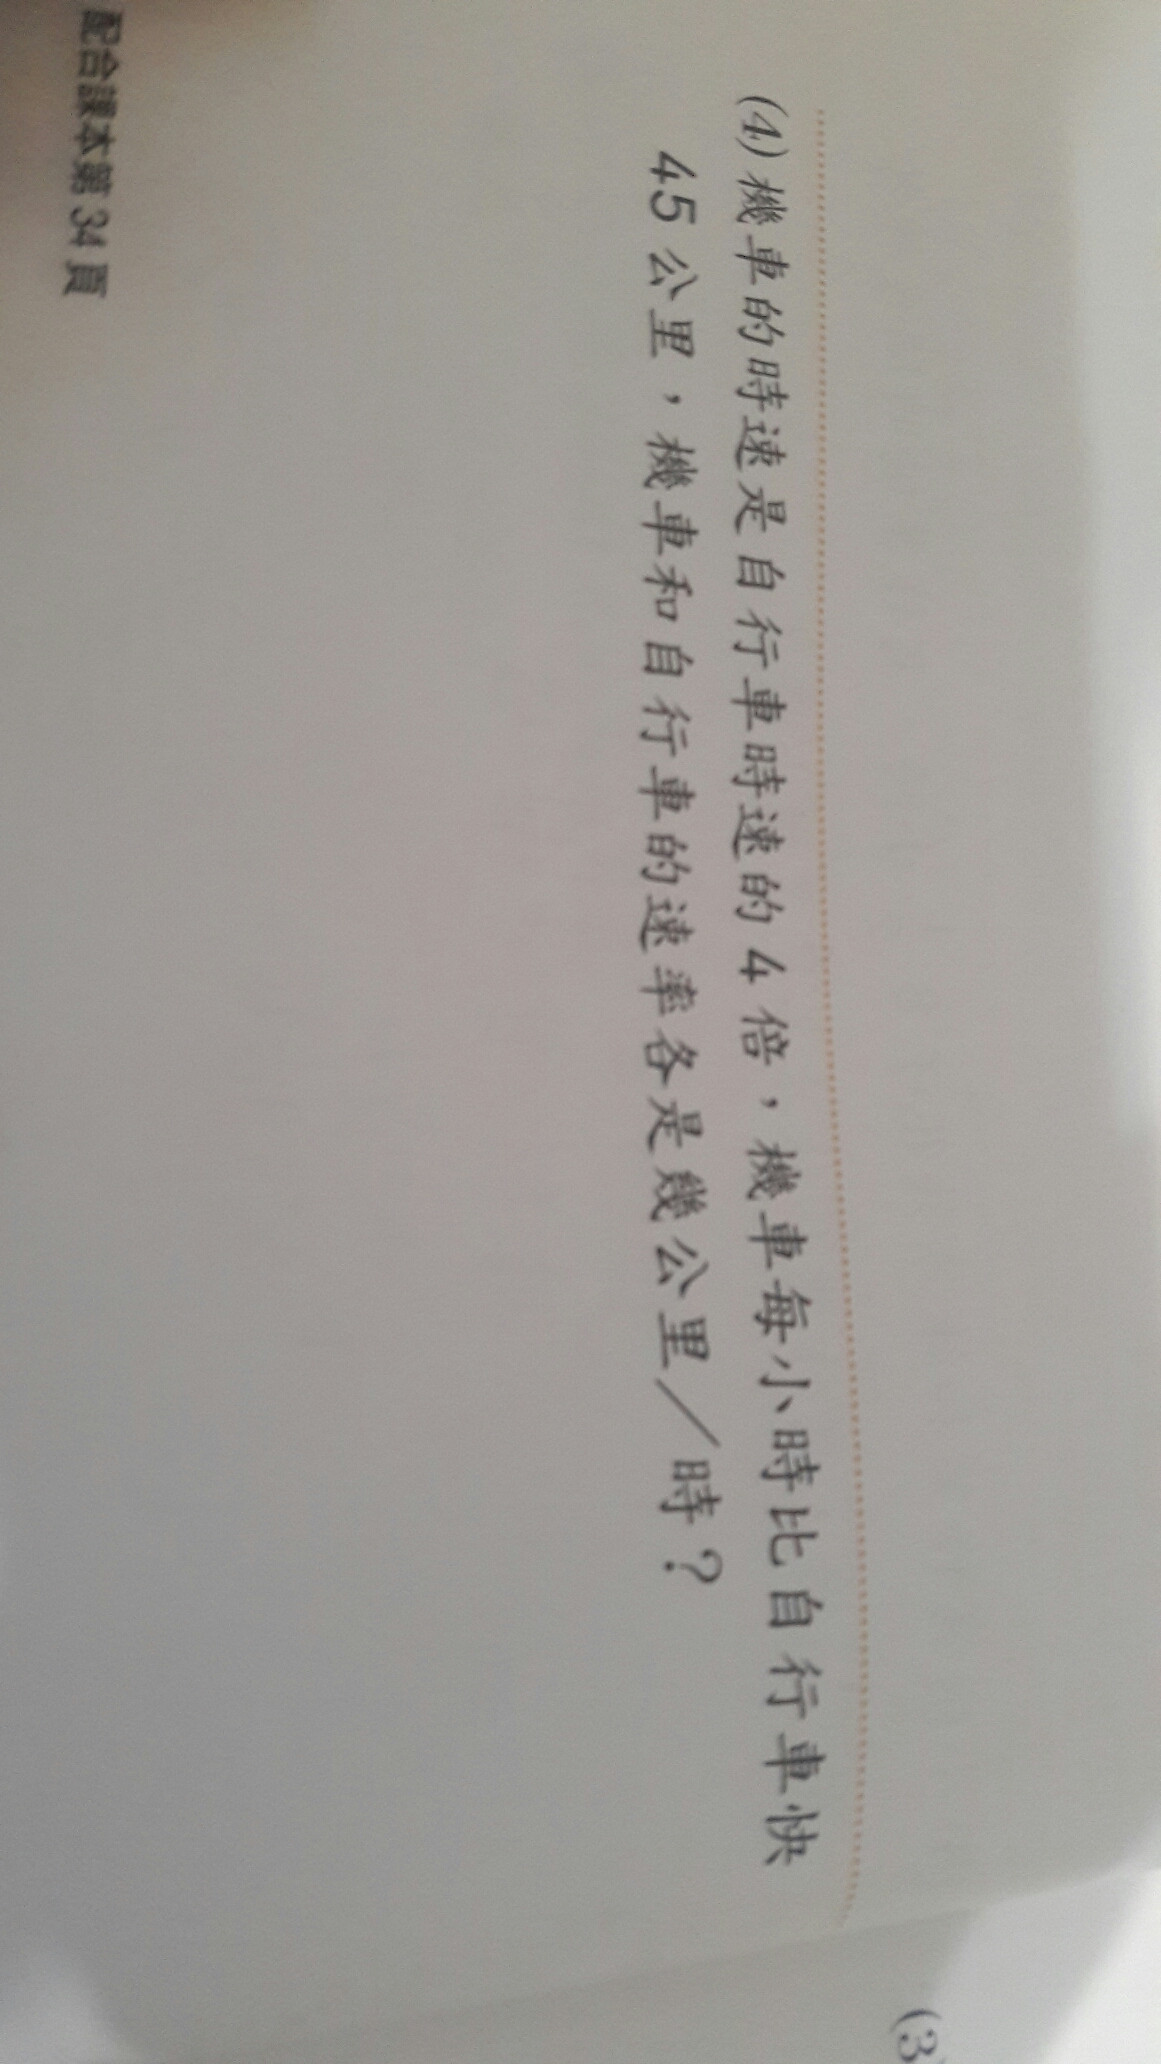 (4)機車的時速是自行車時速的4倍，機車每小時比自行車快
45公里，機車和自行車的速率各是幾公里／時？
配合課本第34頁
(3)